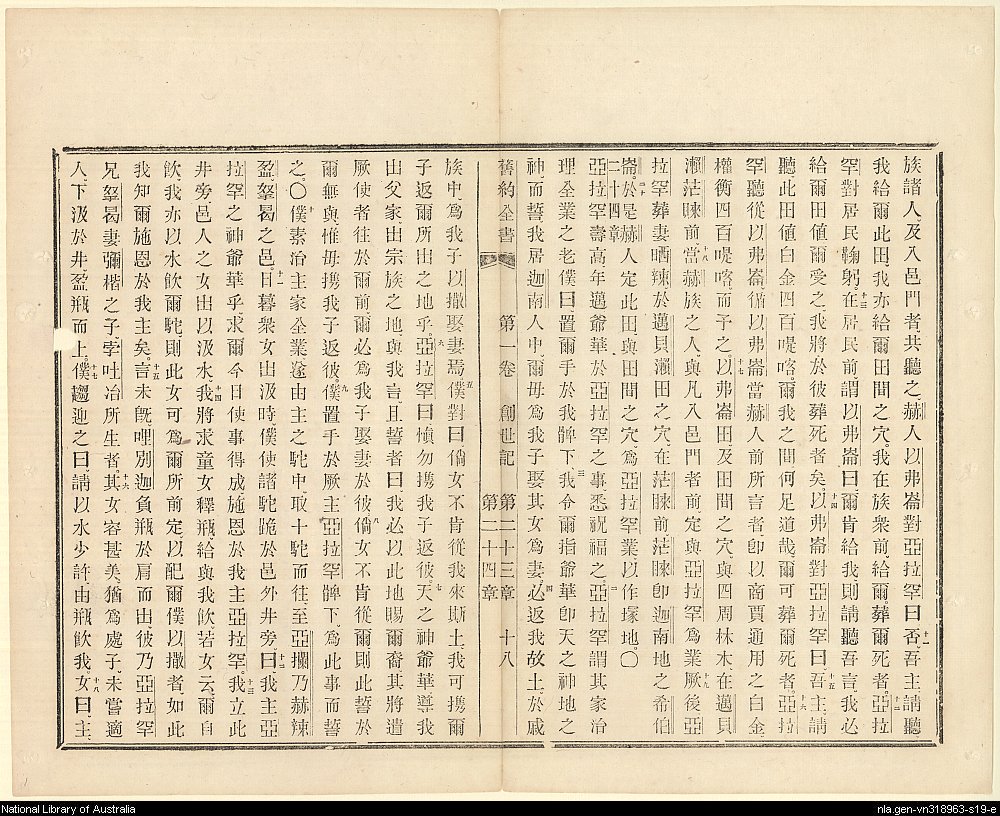 族諸人及入邑門者共聽之赫人以弗崙對亞拉罕曰十一否吾主請聽
我給爾此田我亦給爾田間之穴我在族衆前給爾葬爾死者十二亞拉
罕對居民鞠躬十三在居民前謂以弗崙曰爾肯給我則請聽吾言我必
給爾田値爾受之我將於彼葬死者矣十四以弗崙對亞拉罕曰十五吾主請
聽此田値白金四百㖷喀爾我之間何足道哉爾可葬爾死者十六亞拉
罕聽從以弗崙循以弗崙當赫人前所言者卽以商賈通用之白金
權衡四百㖷喀而予之十七以弗崙田及田間之穴與四周林木在邁貝
瀨茫眛前十八當赫族之人與凡入邑門者前定與亞拉罕爲業十九厥後亞
拉罕葬妻晒辣於邁貝瀨田之穴在茫眛前茫眛卽迦南地之希伯
崙二十於是赫人定此田與田間之穴爲亞拉罕業以作塚地〇
二十四章
亞拉罕壽高年邁爺華於亞拉罕之事悉祝福之二亞拉罕謂其家治
理全業之老僕曰置爾手於我髀下三我令爾指爺華卽天之神地之
神而誓我居迦南人中爾毋爲我子娶其女爲妻四必返我故土於戚
舊約全書 第一卷 創世記 第二十三章 第二十四章 十八
族中爲我子以撒娶妻焉五僕對曰倘女不肯從我來斯土我可攜爾
子返爾所由之地乎六亞拉罕曰愼勿攜我子返彼七天之神爺華導我
出父家由宗族之地與我言且誓者曰我必以此地賜爾裔其將遣
厥使者往於爾前爾必爲我子娶妻於彼八倘女不肯從爾則此誓於
爾無與惟毋攜我子返彼九僕置手於厥主亞拉罕髀下爲此事而誓
之〇十僕素治主家全業遂由主之駝中取十駝而往至亞攔乃赫辣
盈拏曷之邑十一日暮衆女出汲時僕使諸駝跪於邑外井旁十二曰我主亞
拉罕之神爺華乎求爾今日使事得成施恩於我主亞拉罕十三我立此
井旁邑人之女出以汲水十四我將求童女釋瓶給與我飲若女云爾自
飲我亦以水飲爾駝則此女可爲爾所前定以配爾僕以撒者如此
我知爾施恩於我主矣十五言未旣哩別迦負瓶於肩而出彼乃亞拉罕
兄拏曷妻彌楷之子孛吐冶所生者十六其女容甚美猶爲處子未嘗適
人下汲於井盈瓶而上十七僕趨迎之曰請以水少許由瓶飲我十八女曰主
National Library of Australia
nla.gen-vn318963-s19-e